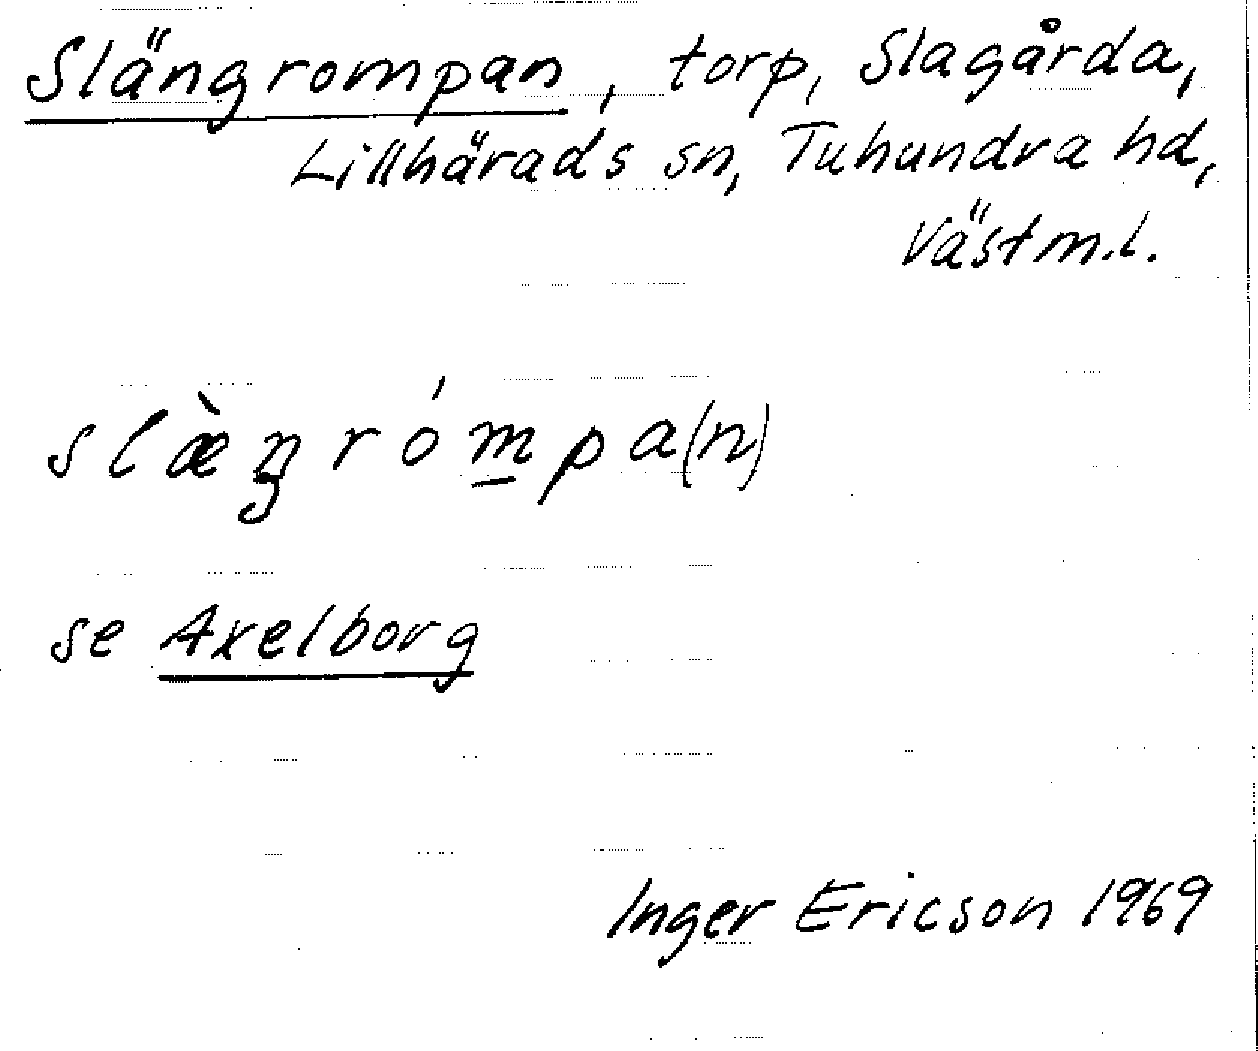 Slängrompan, torp, Slagårda,
Lillhärads sn, Tuhundra hd,
Västm.l.
slæ̀ŋrómpa(n)
se Axelborg
Inger Ericson 1969